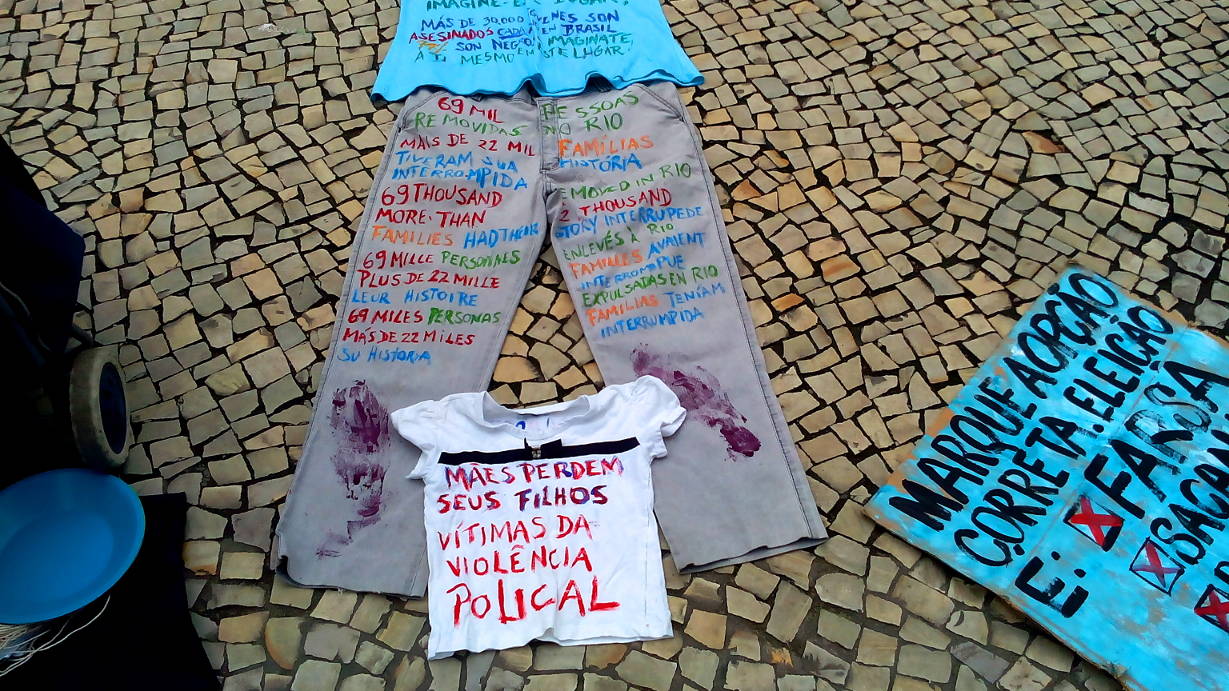 IMAGINE-E LUGAR!
MÁS DE 30.000 JÓVENES SON
ASESINADOS CADA EN BRASIL
77% SON NEGRO! IMAGINATE
A TI MESMO EN STE LUGAR!
69 MIL PESSOAS
REMOVIDAS NO RIO
MAIS DE 22 MIL FAMÍLIAS
TIVERAM SUA HISTÓRIA
INTERROMPIDA
69 THOUSAND EMOVED IN RIO
MORE THAN 2 THOUSAND
FAMILIES HAD THEIR STORY INTERRUPEDE
69 MILLE PERSONNES ENLEVÉS À RIO
PLUS DE 22 MILLE FAMILLES AVAIENT
LEUR HISTOIRE INTERROMPUE
69 MILES PERSONAS EXPULSADAS EN RIO
MÁS DE 22 MILES FAMILIAS TENÍAM
SU HISTORIA INTERRUMPIDA
MÃES PERDEM
SEUS FILHOS
VÍTIMAS DA
VIOLÊNCIA
POLICAL
MARQUE A OPÇÃO
CORRETA. ELEIÇÃO
É:
FARSA
SACAN